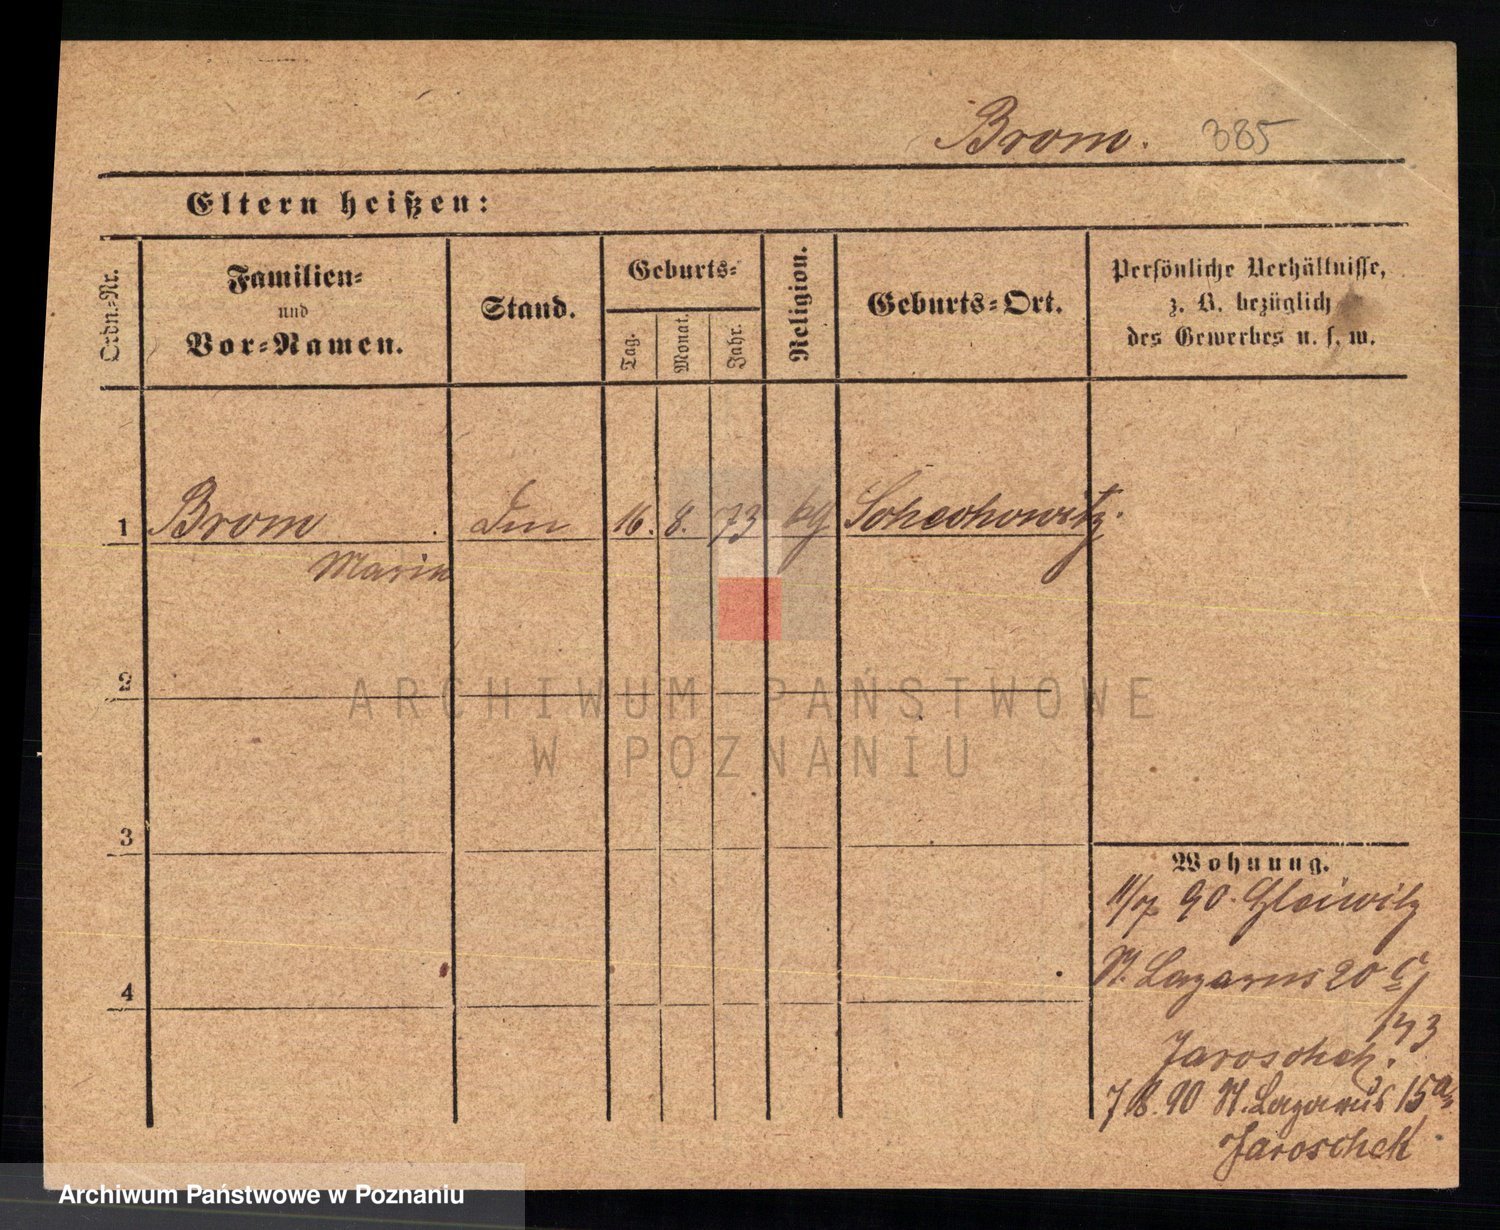 Brom. 385
Eltern heißen:
Ordn.-Nr.
Familien-
und
Vor-Namen.
Stand.
Geburts-
Tag.
Monat.
Jahr.
Religion.
Geburts-Ort.
Persönliche Verhältnisse,
z. B. bezüglich
des Gewerbes u. s. w.
1 Brom 16. 8. 73 kg Schechowitz.
Marie
2
ARCHIWUM PAŃSTWOWE
W POZNANIU
3
4
Wohnung.
11/7 90. Gleiwitz
St. Lazarus 20 c/
173
Jaroschek.
7/8. 90 St. Lazarus 15a
Jaroschek
Archiwum Państwowe w Poznaniu